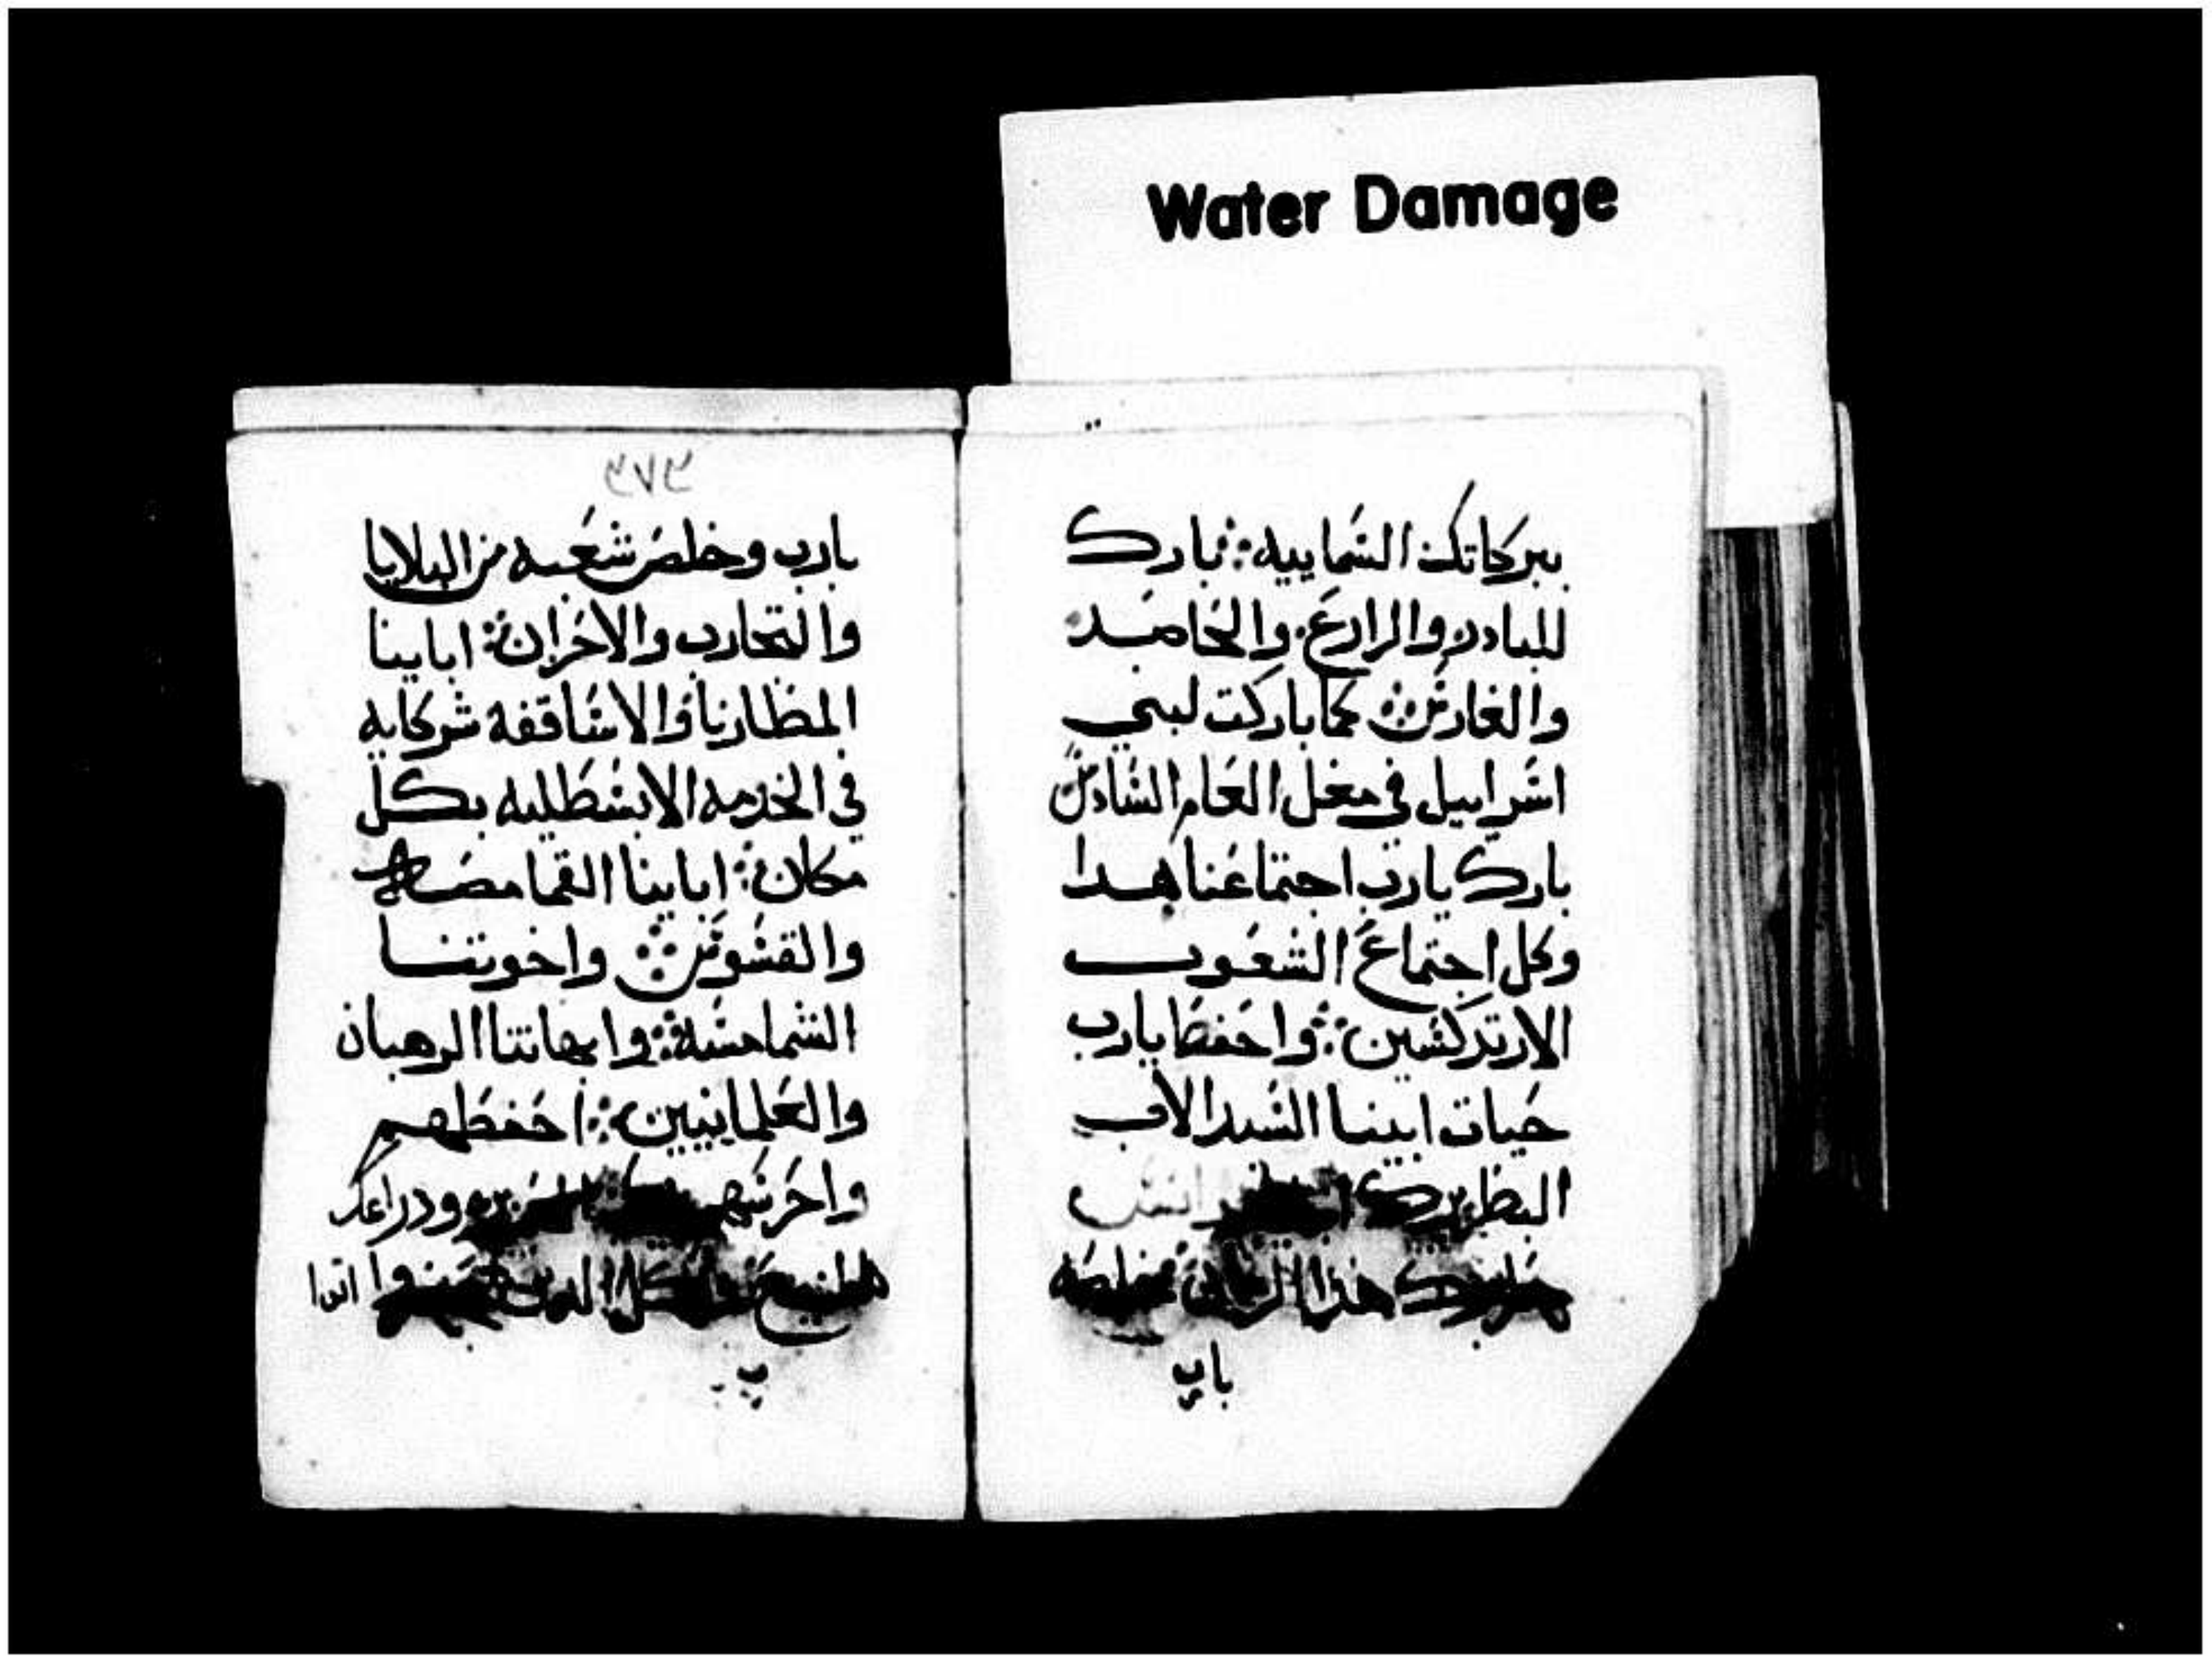 Water Damage
ببركاتك السمايية ∴ بارك
للبادر والزارع والحاصد
والغارس ∴ كما باركت لبني
اسراييل في مغل العام السادس
بارك يارب اجتماعنا هدا
وكل اجتماع الشعوب
الارتدكسين ∴ واحفظ يارب
حيات ابينا السيد الاب
البطريرك
هذا
يارب
٣٧٣
يارب وخلص شعبه من البلايا
والتجارب والاحزان ∴ اباينا
المطارنا والاساقفة شركايه
في الخدمه الابسطليه بكل
مكان ∴ اباينا القمامصه
والقسوس ∴ واخوتنا
الشمامسه ∴ وابهاتنا الرهبان
والعلمانيين ∴ احفظهم
واحرسهم ودراعك
كل اتوا